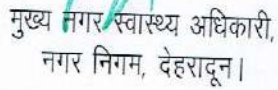 मुख्य नगर स्वास्थ्य अधिकारी,
नगर निगम, देहरादून।